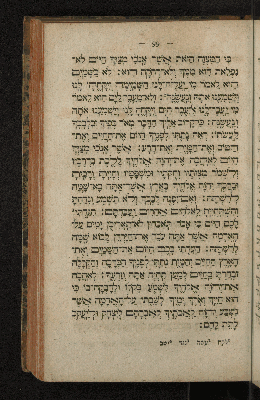 כי המצוה הזאת אשר אנכי מצוך היום לא־
נפלאת הוא ממך ולא־רחקה הוא: לא בשמים
הוא לאמר מי יעלה־לנו השמימה ויקחה לנו
וישמענו אתה ונעשנה: ולא־מעבר לים הוא לאמר
מי יעבר־לנו אל־עבר הים ויקחה לנו וישמענו אתה
ונעשנה: כי־קרוב אליך הדבר מאד בפיך ובלבבך
לעשתו: ראה נתתי לפניך היום את־החיים ואת־
הטוב ואת־המות ואת־הרע: אשר אנכי מצוך
היום לאהבה את־יהוה אלהיך ללכת בדרכיו
ולשמר מצותיו וחקתיו ומשפטיו וחיית ורבית
וברכך יהוה אלהיך בארץ אשר־אתה בא־שמה
לרשתה: ואם־יפנה לבבך ולא תשמע ונדחת
והשתחוית לאלהים אחרים ועבדתם: הגדתי
לכם היום כי אבד תאבדון לא־תאריכן ימים על־
האדמה אשר אתה עבר את־הירדן לבוא שמה
לרשתה: העדתי בכם היום את־השמים ואת־
הארץ החיים והמות נתתי לפניך הברכה והקללה
ובחרת בחיים למען תחיה אתה וזרעך: לאהבה
את־יהוה אלהיך לשמע בקלו ולדבקה־בו כי
הוא חייך וארך ימיך לשבת על־האדמה אשר
נשבע יהוה לאבתיך לאברהם ליצחק וליעקב
לתת להם: